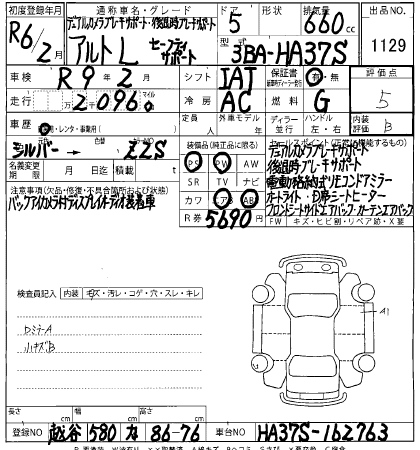 初度登録年月 通称車名・グレード ドア 形状 排気量 出品NO
R6/2月 デュアルカメラブレーキサポート・後退時ブレーキサポート 5 660cc 1129
アルト L セーフティサポート 型式 3BA-HA37S
車検 R9年2月 シフト IAT 保証書 有・無 評価点
走行 2096 マイル km 冷房 AC 燃料 G 5
車歴 自・レンタ・事業用( ) 定員 人 外車モデル 年 ディーラー 並行 ハンドル 左・右 内装 B
シルバー 色替 ZZS 装備品(純正品に限る) セールスポイント(正常に機能するもの)
名義変更期限 月 日迄 積載 t PS PW AW
注意事項(欠品・修復・不具合箇所および状態) SR TV ナビ
バックアイカメラ付ディスプレイオーディオ装着車 カワ エアB AB
デュアルカメラブレーキサポート
後退時ブレーキサポート
電動格納式リモコンドアミラー
オートライト・D席シートヒーター
フロントシートサイドエアバック・カーテンエアバック
R券 5690円 FW キズ・ヒビ割・リペア跡・X要
検査員記入 内装 キズ・汚レ・コゲ・穴・スレ・キレ
DミラーA
小キズB
A1
長さ cm 幅 cm 高さ cm
登録NO 越谷 580 カ 86-76 車台NO HA37S-162763